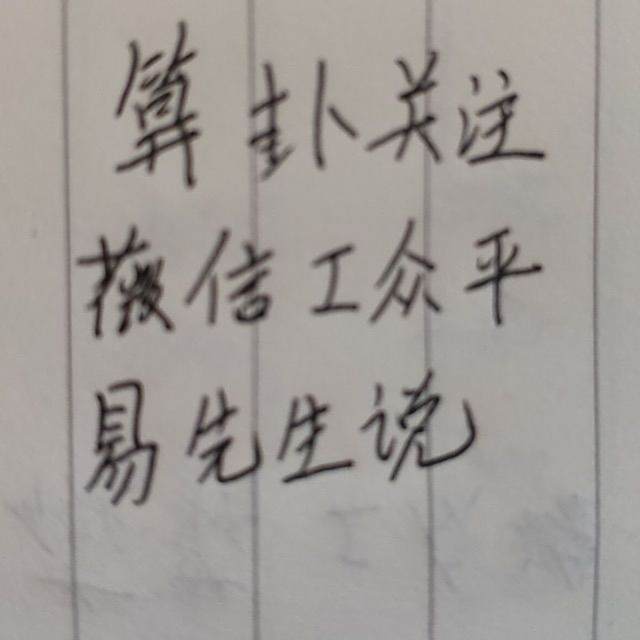 算卦关注
薇信工众平
易先生说